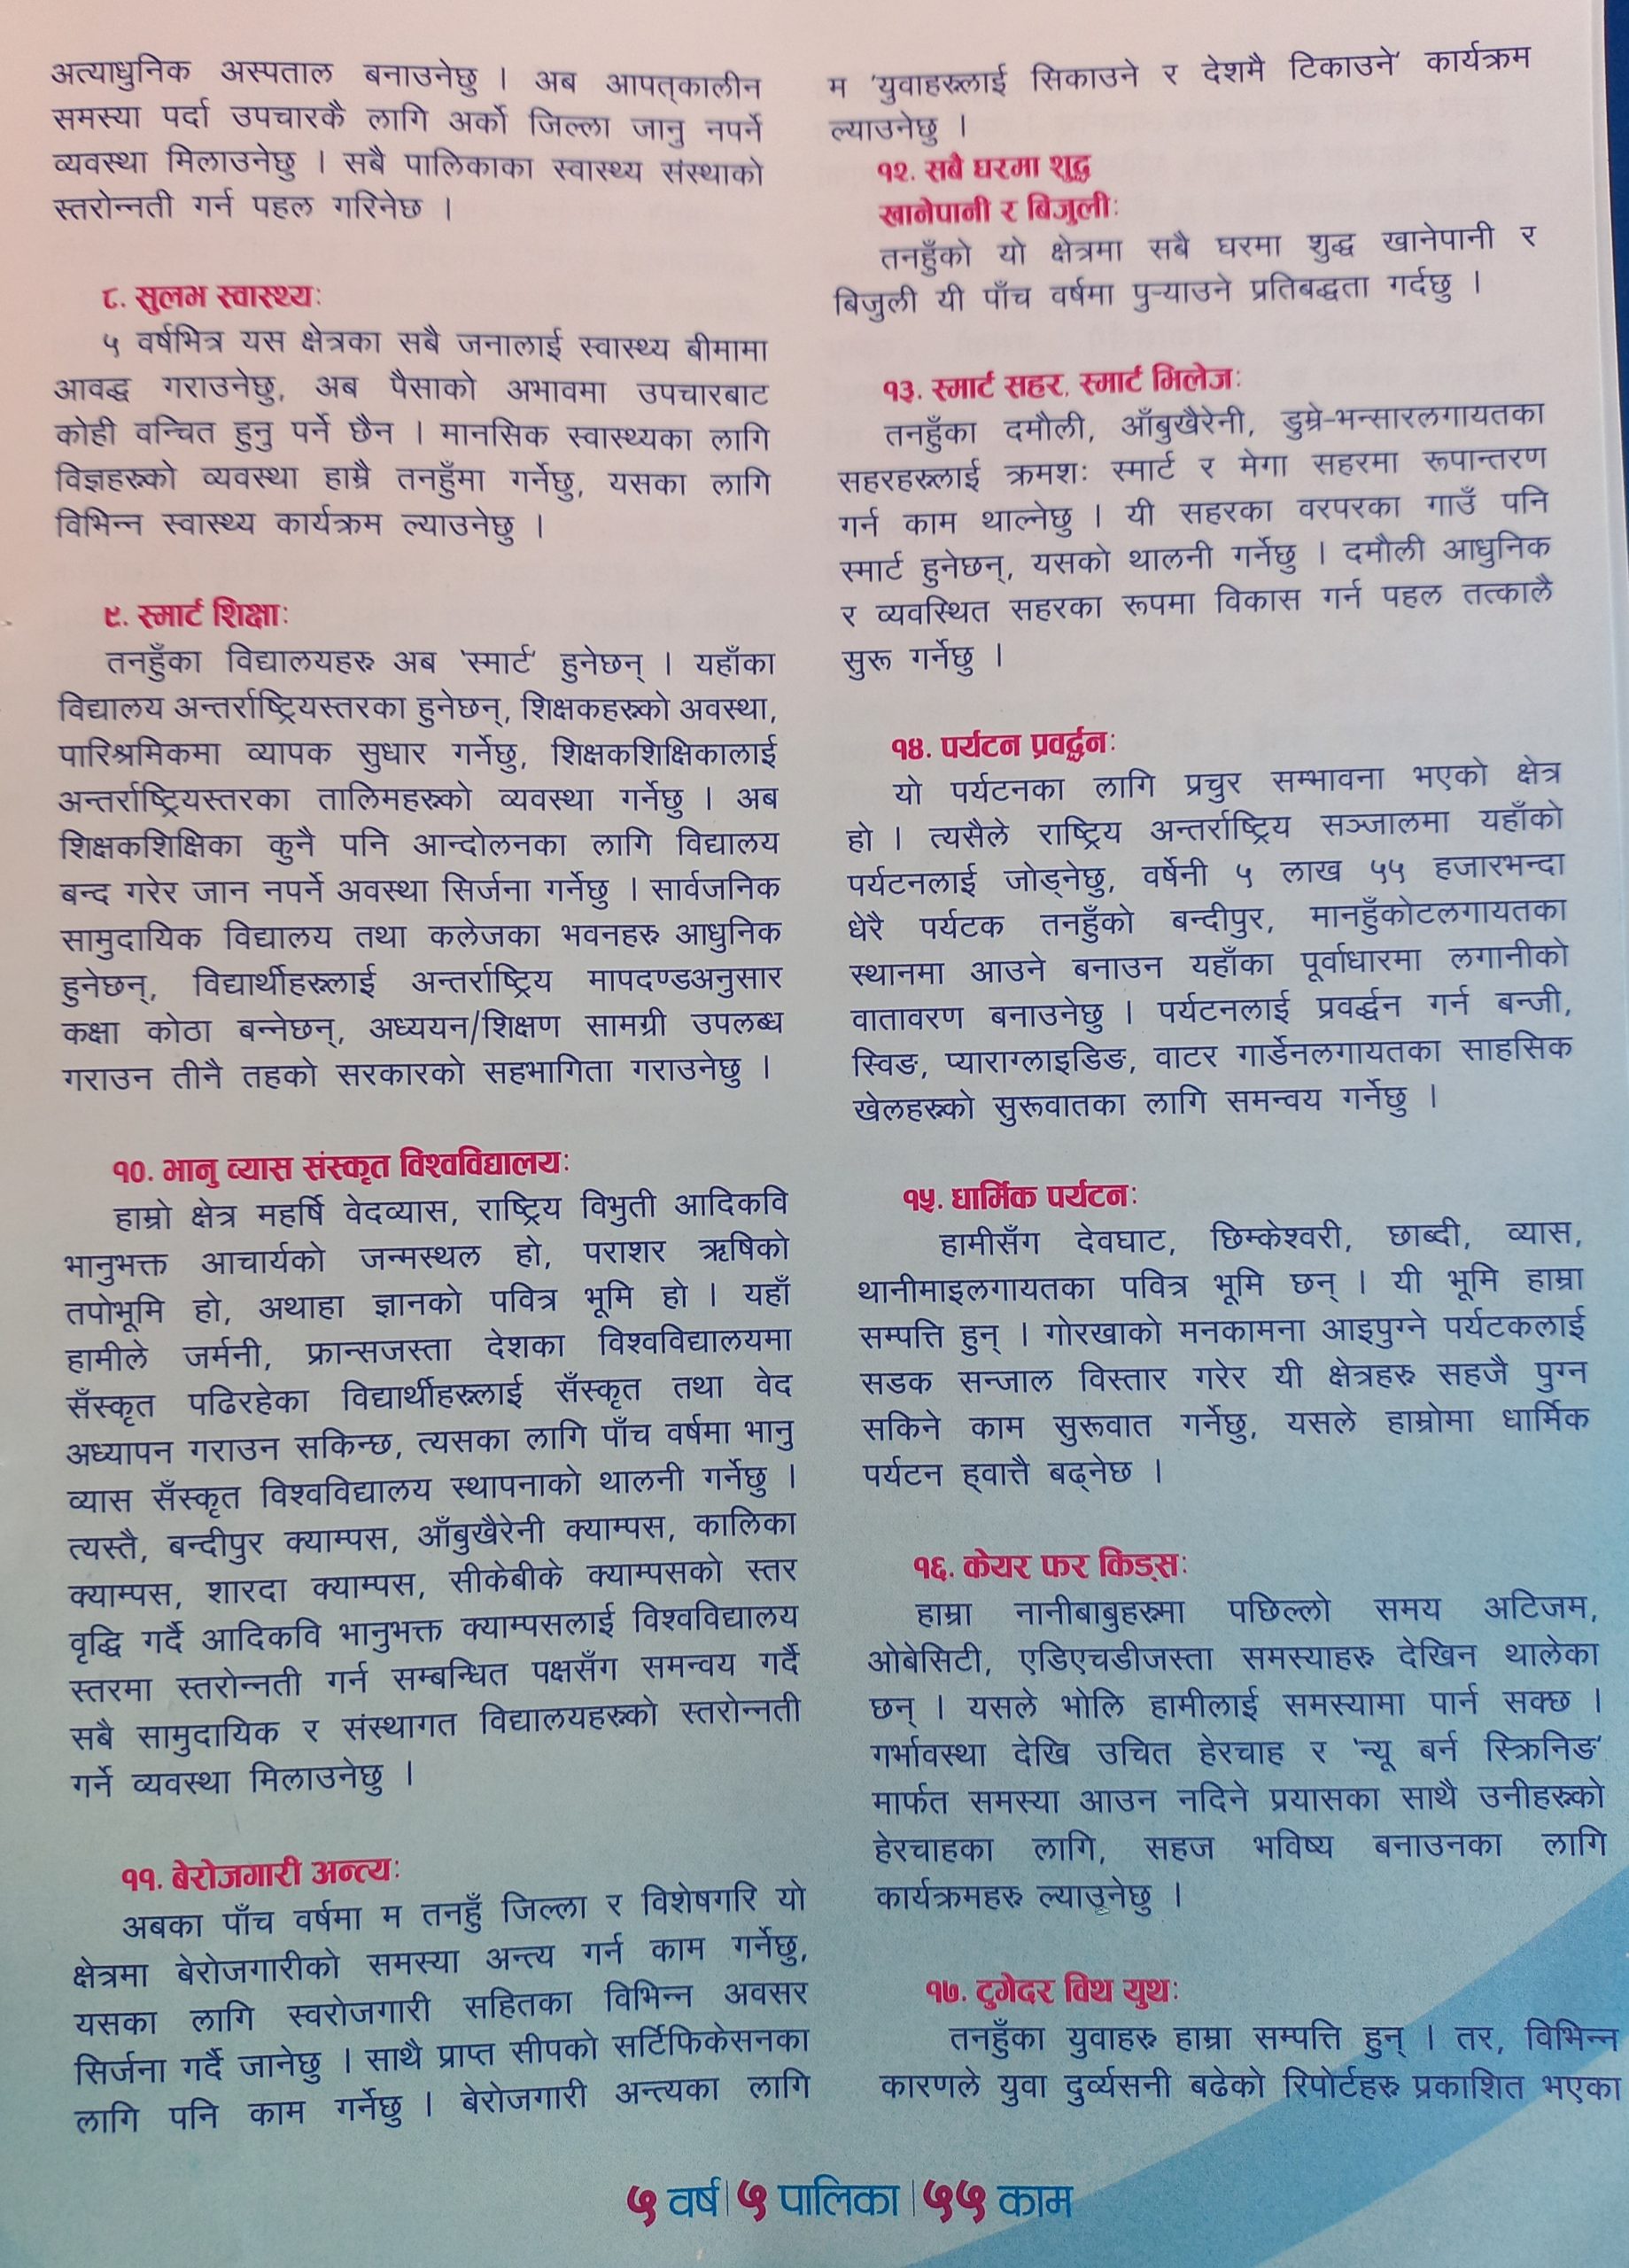 अत्याधुनिक अस्पताल बनाउनेछु । अब आपत्कालीन
समस्या पर्दा उपचारकै लागि अर्को जिल्ला जानु नपर्ने
व्यवस्था मिलाउनेछु । सबै पालिकाका स्वास्थ्य संस्थाको
स्तरोन्नती गर्न पहल गरिनेछ ।
८. सुलभ स्वास्थ्यः
५ वर्षभित्र यस क्षेत्रका सबै जनालाई स्वास्थ्य बीमामा
आवद्ध गराउनेछु, अब पैसाको अभावमा उपचारबाट
कोही वन्चित हुनु पर्ने छैन । मानसिक स्वास्थ्यका लागि
विज्ञहरुको व्यवस्था हाम्रै तनहुँमा गर्नेछु, यसका लागि
विभिन्न स्वास्थ्य कार्यक्रम ल्याउनेछु ।
९. स्मार्ट शिक्षाः
तनहुँका विद्यालयहरु अब 'स्मार्ट' हुनेछन् । यहाँका
विद्यालय अन्तर्राष्ट्रियस्तरका हुनेछन्, शिक्षकहरुको अवस्था,
पारिश्रमिकमा व्यापक सुधार गर्नेछु, शिक्षकशिक्षिकालाई
अन्तर्राष्ट्रियस्तरका तालिमहरुको व्यवस्था गर्नेछु । अब
शिक्षकशिक्षिका कुनै पनि आन्दोलनका लागि विद्यालय
बन्द गरेर जान नपर्ने अवस्था सिर्जना गर्नेछु । सार्वजनिक
सामुदायिक विद्यालय तथा कलेजका भवनहरु आधुनिक
हुनेछन्, विद्यार्थीहरुलाई अन्तर्राष्ट्रिय मापदण्डअनुसार
कक्षा कोठा बन्नेछन्, अध्ययन/शिक्षण सामग्री उपलब्ध
गराउन तीनै तहको सरकारको सहभागिता गराउनेछु ।
१०. भानु व्यास संस्कृत विश्वविद्यालयः
हाम्रो क्षेत्र महर्षि वेदव्यास, राष्ट्रिय विभुती आदिकवि
भानुभक्त आचार्यको जन्मस्थल हो, पराशर ऋषिको
तपोभूमि हो, अथाहा ज्ञानको पवित्र भूमि हो । यहाँ
हामीले जर्मनी, फ्रान्सजस्ता देशका विश्वविद्यालयमा
सँस्कृत पढिरहेका विद्यार्थीहरुलाई सँस्कृत तथा वेद
अध्यापन गराउन सकिन्छ, त्यसका लागि पाँच वर्षमा भानु
व्यास सँस्कृत विश्वविद्यालय स्थापनाको थालनी गर्नेछु ।
त्यस्तै, बन्दीपुर क्याम्पस, आँबुखैरेनी क्याम्पस, कालिका
क्याम्पस, शारदा क्याम्पस, सीकेबीके क्याम्पसको स्तर
वृद्धि गर्दै आदिकवि भानुभक्त क्याम्पसलाई विश्वविद्यालय
स्तरमा स्तरोन्नती गर्न सम्बन्धित पक्षसँग समन्वय गर्दै
सबै सामुदायिक र संस्थागत विद्यालयहरुको स्तरोन्नती
गर्ने व्यवस्था मिलाउनेछु ।
११. बेरोजगारी अन्त्यः
अबका पाँच वर्षमा म तनहुँ जिल्ला र विशेषगरि यो
क्षेत्रमा बेरोजगारीको समस्या अन्त्य गर्न काम गर्नेछु,
यसका लागि स्वरोजगारी सहितका विभिन्न अवसर
सिर्जना गर्दै जानेछु । साथै प्राप्त सीपको सर्टिफिकेसनका
लागि पनि काम गर्नेछु । बेरोजगारी अन्त्यका लागि
म 'युवाहरुलाई सिकाउने र देशमै टिकाउने' कार्यक्रम
ल्याउनेछु ।
१२. सबै घरमा शुद्ध
खानेपानी र बिजुलीः
तनहुँको यो क्षेत्रमा सबै घरमा शुद्ध खानेपानी र
बिजुली यी पाँच वर्षमा पुऱ्याउने प्रतिबद्धता गर्दछु ।
१३. स्मार्ट सहर, स्मार्ट भिलेजः
तनहुँका दमौली, आँबुखैरेनी, डुम्रे-भन्सारलगायतका
सहरहरुलाई क्रमशः स्मार्ट र मेगा सहरमा रूपान्तरण
गर्न काम थाल्नेछु । यी सहरका वरपरका गाउँ पनि
स्मार्ट हुनेछन्, यसको थालनी गर्नेछु । दमौली आधुनिक
र व्यवस्थित सहरका रूपमा विकास गर्न पहल तत्कालै
सुरू गर्नेछु ।
१४. पर्यटन प्रवर्द्धनः
यो पर्यटनका लागि प्रचुर सम्भावना भएको क्षेत्र
हो । त्यसैले राष्ट्रिय अन्तर्राष्ट्रिय सञ्जालमा यहाँको
पर्यटनलाई जोड्नेछु, वर्षेनी ५ लाख ५५ हजारभन्दा
धेरै पर्यटक तनहुँको बन्दीपुर, मानहुँकोटलगायतका
स्थानमा आउने बनाउन यहाँका पूर्वाधारमा लगानीको
वातावरण बनाउनेछु । पर्यटनलाई प्रवर्द्धन गर्न बन्जी,
स्विङ, प्याराग्लाइडिङ, वाटर गार्डेनलगायतका साहसिक
खेलहरुको सुरूवातका लागि समन्वय गर्नेछु ।
१५. धार्मिक पर्यटनः
हामीसँग देवघाट, छिम्केश्वरी, छाब्दी, व्यास,
थानीमाइलगायतका पवित्र भूमि छन् । यी भूमि हाम्रा
सम्पत्ति हुन् । गोरखाको मनकामना आइपुग्ने पर्यटकलाई
सडक सन्जाल विस्तार गरेर यी क्षेत्रहरु सहजै पुग्न
सकिने काम सुरूवात गर्नेछु, यसले हाम्रोमा धार्मिक
पर्यटन ह्वात्तै बढ्नेछ ।
१६. केयर फर किड्सः
हाम्रा नानीबाबुहरुमा पछिल्लो समय अटिजम,
ओबेसिटी, एडिएचडीजस्ता समस्याहरु देखिन थालेका
छन् । यसले भोलि हामीलाई समस्यामा पार्न सक्छ ।
गर्भावस्था देखि उचित हेरचाह र 'न्यू बर्न स्क्रिनिङ'
मार्फत समस्या आउन नदिने प्रयासका साथै उनीहरुको
हेरचाहका लागि, सहज भविष्य बनाउनका लागि
कार्यक्रमहरु ल्याउनेछु ।
१७. टुगेदर विथ युथः
तनहुँका युवाहरु हाम्रा सम्पत्ति हुन् । तर, विभिन्न
कारणले युवा दुर्व्यसनी बढेको रिपोर्टहरु प्रकाशित भएका
५ वर्ष | ५ पालिका | ५५ काम